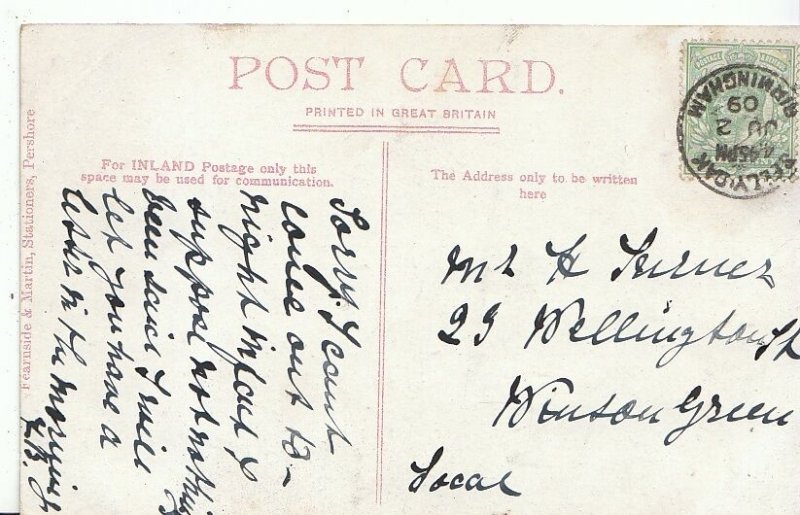 POST CARD.
PRINTED IN GREAT BRITAIN
For INLAND Postage only this
space may be used for communication.
The Address only to be written
here
Fearnside & Martin, Stationers, Pershore
Sorry I cant
come out to-
night in fact I
suppose not
been seise I will
let you have a
letter in the morning
Mr H Turner
29 Wellington St
Winson Green
Local
SELLY OAK
4.45PM
JU 2
09
BIRMINGHAM